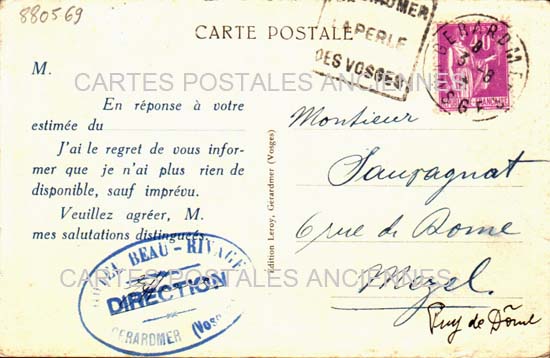 880569
CARTE POSTALE
GERARDMER
LA PERLE
DES VOSGES
GERARDMER
VOSGES
CARTES POSTALES ANCIENNES
M.
En réponse à votre
estimée du
J'ai le regret de vous infor-
mer que je n'ai plus rien de
disponible, sauf imprévu.
Veuillez agréer, M.
mes salutations distinguées.
HOTEL BEAU-RIVAGE
DIRECTION
GERARDMER (Vosges)
CARTES POSTALES ANCIENNES
Edition Leroy, Gérardmer (Vosges)
Monsieur
Sauvagnat
6 rue de Dome
Mezel.
Puy de Dôme